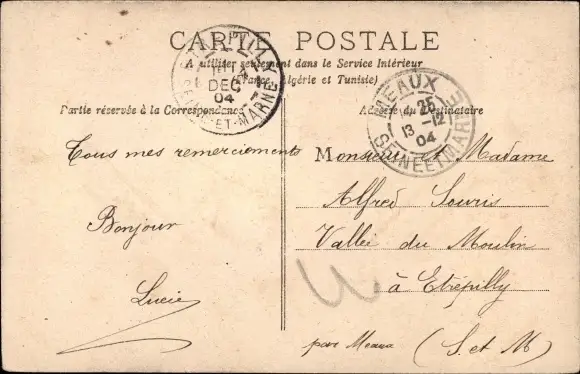 CARTE POSTALE
A utiliser seulement dans le Service Intérieur
(France, Algérie et Tunisie)
Partie réservée à la Correspondance
Adresse du Destinataire
DEC
04
SEINE-ET-MARNE
MEAUX
25
13-12
04
SEINE ET MARNE
Tous mes remerciements
Bonjour
Lucie
Monsieur et Madame
Alfred Souris
Vallée du Moulin
à Etrépilly
par Meaux (S. et M)